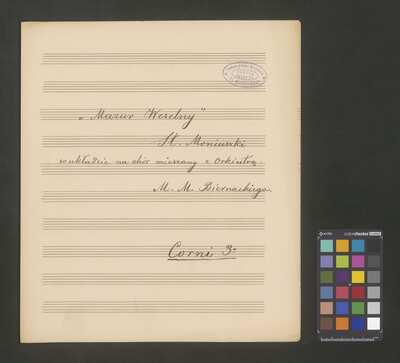 „Mazur Weselny"
St. Moniuszki
w układzie na chór mieszany z Orkiestrą
M. M. Biernackiego.
Corni 3º